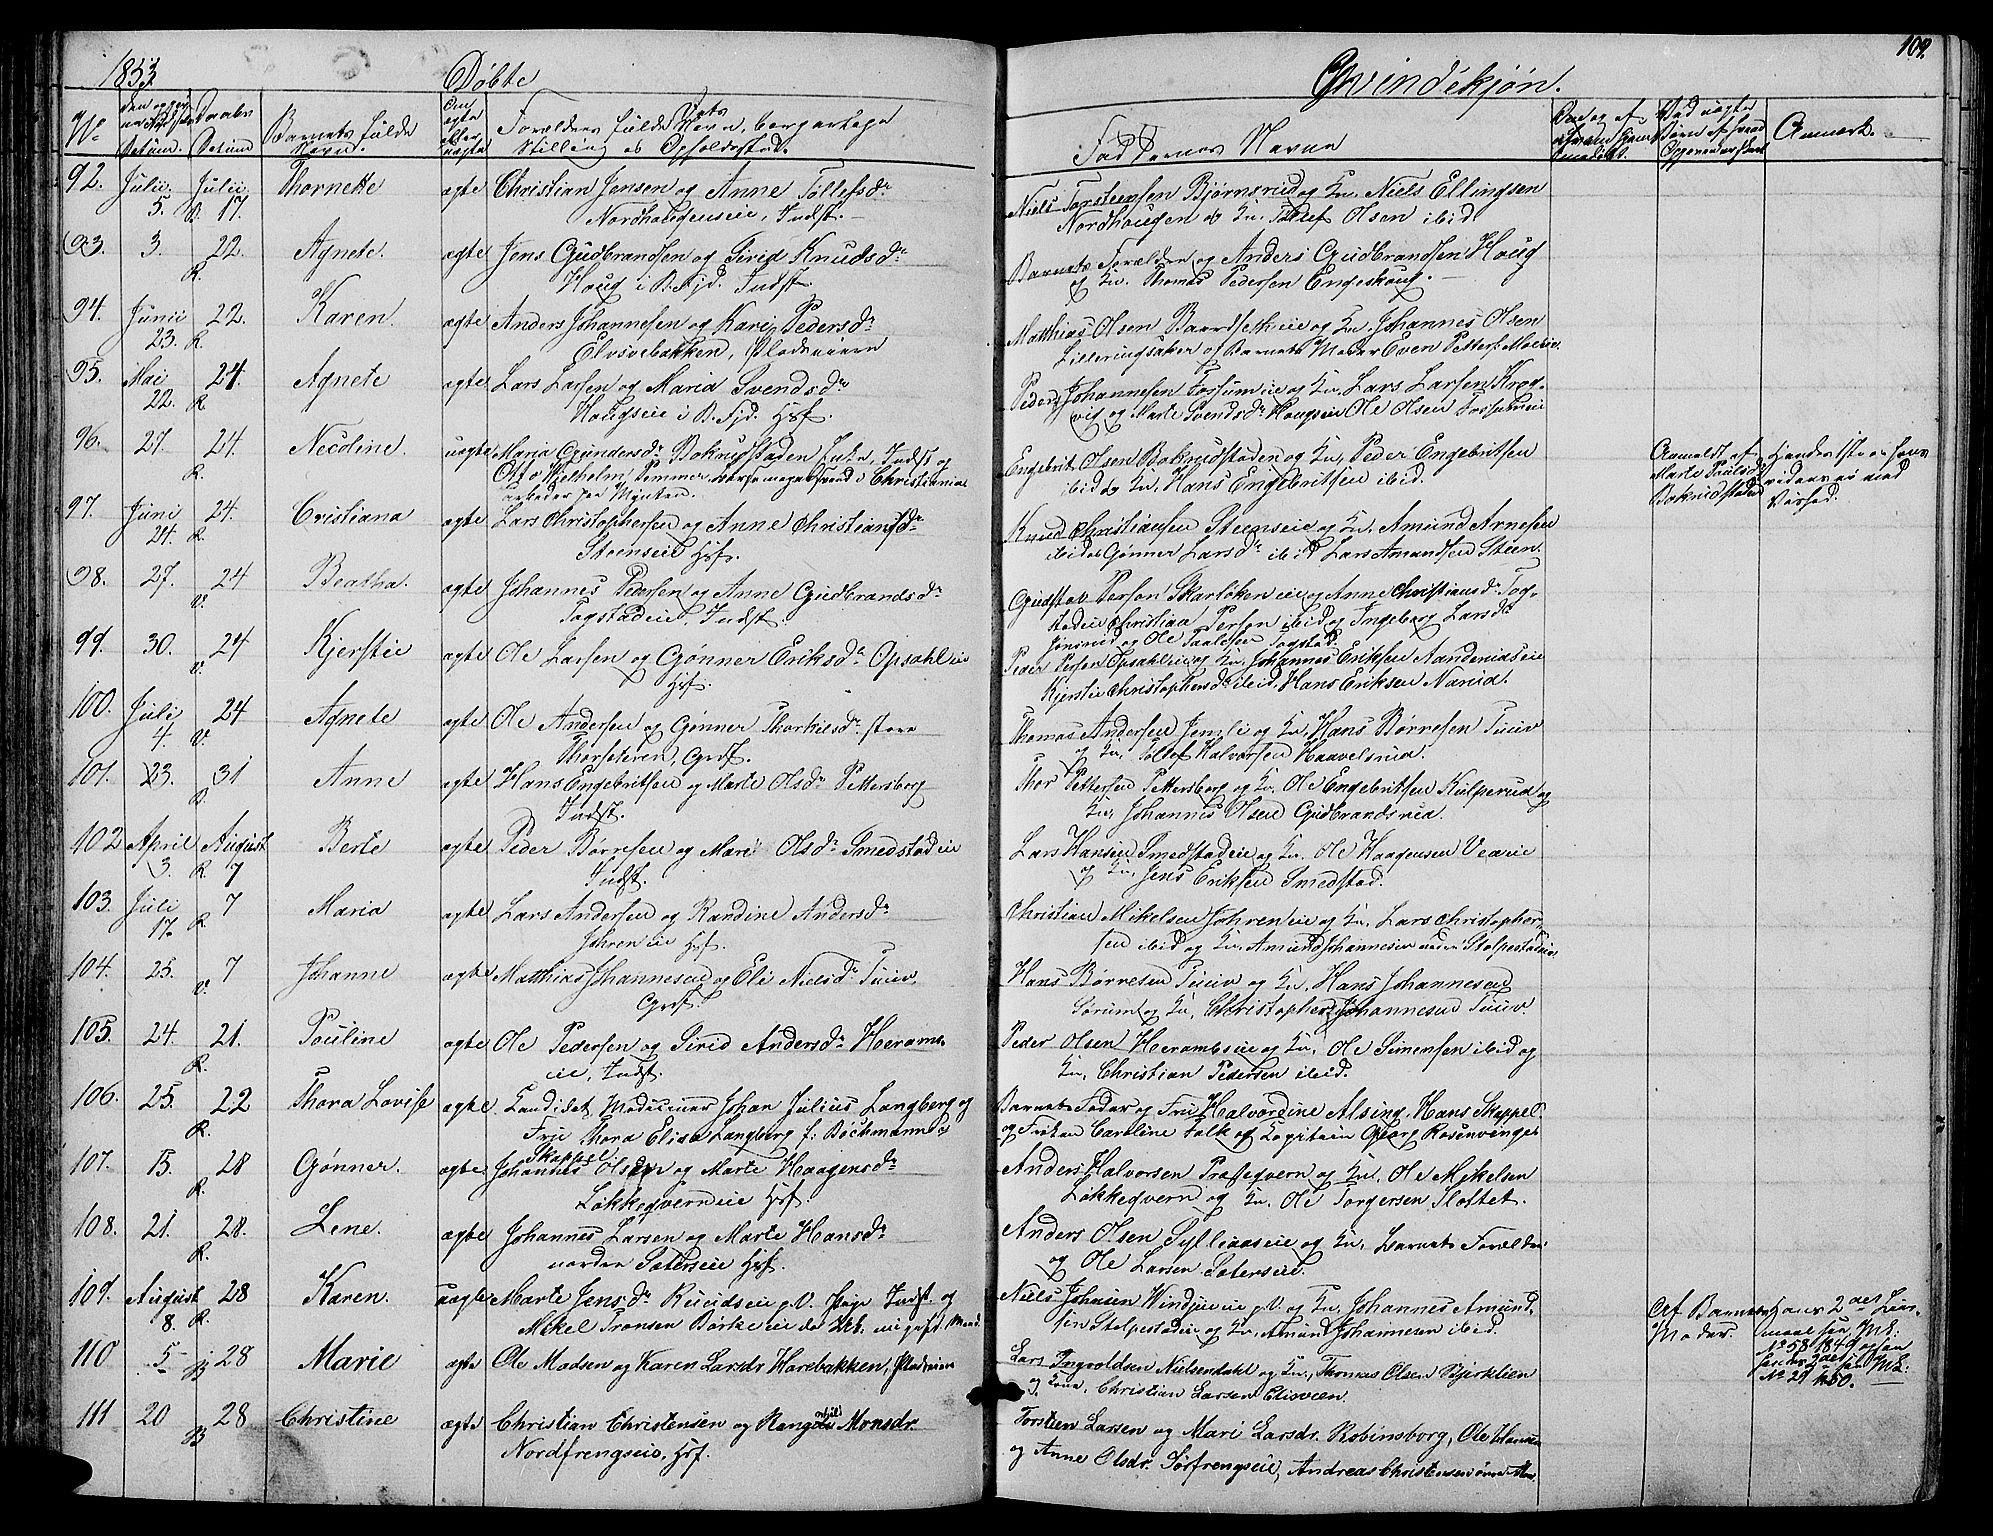 109.
1853. Døbte Qvindekjøn.
No Barnets fulde Navn. Forældres fulde Navn, Borgerlige Stilling og Opholdssted. Faddernes Navne Anmærk.
92. Julii 5. Julii 17. Thornette ægte Christian Jensen og Anne Tollefsdr
Nordhougenseie, Indst.
Niels Torsteensen Bjørnsrud og Kn. Niels Ellingsen
Nordhougen og Kn. Tollef Olsen ibid
93. 3. 22. R. Agnete. ægte Jens Gudbrandsen og Sirid Knudsdr
Houg i B.Fjd. Indst.
Barnets Forældre og Anders Gudbrandsen Houg
og Kn. Thomas Pedersen Engeskoug.
94. Junii 23. 22. R. Karen. ægte Anders Johannesen og Kari Pedersdr
Elvsvebakken, Pladseiere
Matthias Olsen Baardsetheie og Kn. Johannes Olsen
Lilleringsaker og Barnets Moder Even Petters. Moeeie.
95. Mai 22. 24. R. Agnete ægte Lars Larsen og Maria Svendsdr
Hougseie i B.Fjd. Hsf.
Peder Johannesen Forsumeie og Kn. Lars Larsen Krog-
vig og Marte Svendsdr Hougseie Ole Olsen Forsumeie
96. 27. 24. R. Nicoline. uægte Maria Gundersdr Boknudstaden Enke, Indst og
Otto Wilhelm Pemmer, Svend i Christiania
arbeder paa Mynten.
Engebrit Olsen Boknudstaden og Kn. Peder Engebritsen
ibid og Kn. Hans Engebritsen ibid.
Anmeldt af
Marte Paulsdr
Boknudstad
Hendes 1ste
97. Juni 24. 24. R. Cristiana ægte Lars Christophersen og Anne Christiansdr
Steenseie Hsf.
Knud Christiansen Steenseie og Kn. Amund Arnesen
ibid og Gønner Larsdr ibid Lars Amundsen Steen.
98. 27. 24 V. Beatha. ægte Johannes Pedersen og Anne Gudbrandsdr
Togstadeie, Indst.
Gudstav Person Skarløkeneie og Anne Christiansdr Tog-
stadeie Christian Persen ibid og Ingeborg Larsdr
Jonsrud og Ole Paulsen Togstad.
99. 30. 24 V. Kjerstie ægte Ole Larsen og Gønner Eriksdr Opsahleie
Hsf.
Peder Persen Opsahleie og Kn. Johannes Eriksen
Kjerstie Christophersdr ibid, Hans Eriksen Narud.
100. Juli 4. 24 V. Agnete ægte Ole Andersen og Gønner Thorkilsdr store
Thorseteren, Grdf.
Thomas Andersen Jemli og Kn. Hans Børresen Tuuv
og Kn. Tollef Halvorsen Haavelsrud.
101. 23. 31 Anne ægte Hans Engebritsen og Marte Olsdr Pettersborg
Indst.
Thor Pettersen Pettersborg og Kn. Ole Engebritsen Kulperud og
Kn. Johannes Olsen Gudbrandsrud.
102 April 3. August 7 R. Berte ægte Peder Børresen og Mari Olsdr Smedstadeie
Indst.
Lars Hansen Smedstadeie og Kn. Ole Haagensen Veieie
og Kn. Jens Eriksen Smedstad.
103. Juli 17. 7 R. Maria ægte Lars Andersen og Randine Andersdr
Johreneie Hsf.
Christian Mikelsen Johreneie og Kn. Lars Christopher-
sen ibid og Kn. Amund Johannesen Stolpestadeie
104. 25. 7 V. Johanne ægte Matthias Johannesen og Eli Nielsdr Tuuv,
Grdf.
Hans Børresen Tuuv og Kn. Hans Johannesen
Sørum og Kn. Christopher Johannesen Tuuv.
105. 24. 21. R. Pouline ægte Ole Pedersen og Sirid Andersdr Hoerams-
eie, Indst.
Peder Olsen Hoerambseie og Kn. Ole Simensen ibid og
Kn. Christian Pedersen ibid.
106. 25. 22 R. Thora Lovise ægte Kandidat Medicinæ Johan Julius Langberg og
Frue Thora Elisa Langberg f: Bøckmann
Barnets Fader og Frue Halvordine Alsing. Hans Skeppel
og Frøken Caroline Falk og Kapitain Georg Rosenvenge
107. 15. 28 R. Gønner. ægte Johannes Olsen og Marte Haagensdr
Løkkeqverneie Hsf.
Anders Halvorsen Præsteqvern og Kn. Ole Mikelsen
Løkkeqvern og Kn. Ole Torgersen Slottet.
108. 21. 28. R. Lene. ægte Johannes Larsen og Marte Hansdr
nordre Saterseie Hsf.
Anders Olsen Sylliaaseie og Kn. Barnets Forældre
og Ole Larsen Saterseie.
109. August 8. 28 R. Karen. uægte Marte Jensdr Ruudseie p.V. Pige Indst. og
Mikel Tronsen Børkeeie do Ark. ugift Mand.
Niels Johnsen Windjueie p.V. og Kn. Johannes Amund-
sen Stolpestadeie og Kn. Amund Johannesen ibid.
Af Barnets
Moder.
Hans 2det Leier-
maal see ME:
No 58 1849 og
hendes 2det see ME:
No 29 1850.
110 5 28 Marie ægte Ole Madsen og Karen Larsdr Harebakken, Pladseier
Lars Ingvoldsen Nielsendahl og Kn., Thomas Olsen Bjerklien
og Kone, Christian Larsen Elisveen.
111 20 28 Christine ægte Christian Christensen og Rangnhil Monsdr.
Nordfrengseie. Hsf.
Torstien Larsen og Mari Larsdr. Robinsborg, Ole Hansen
og Anne Olsdr. Sørfrengseie, Andreas Christensen